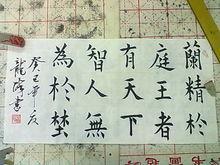 蘭精於
庭王者
有天下
智人無
為於埜
癸巳年夏
龍峰書